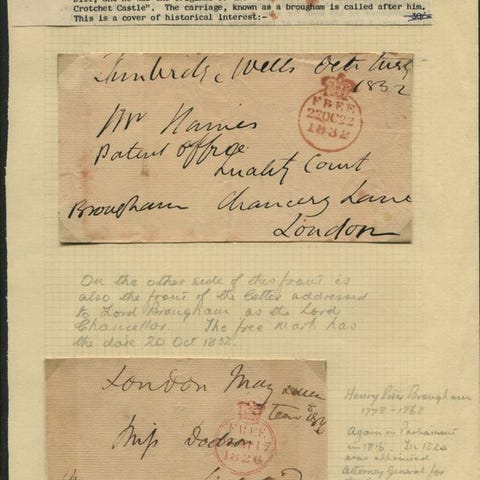 Crotchet Castle". The carriage, known as a brougham is called after him.
This is a cover of historical interest:-
Tunbridge Wells Octr
1832
FREE
22OC22
1832
Mr Hames
Patent Office
Quality Court
Brougham Chancery Lane
London
On the other side of this front is
also the front of the letter addressed
to Lord Brougham as the Lord
Chancellor. The free mark has
the date 20 Oct 1832.
London May
FREE
1826
Miss Dodson
Henry Peter Brougham
1778-1868
Again in Parliament
in 1816. In 1820
was appointed
Attorney General for